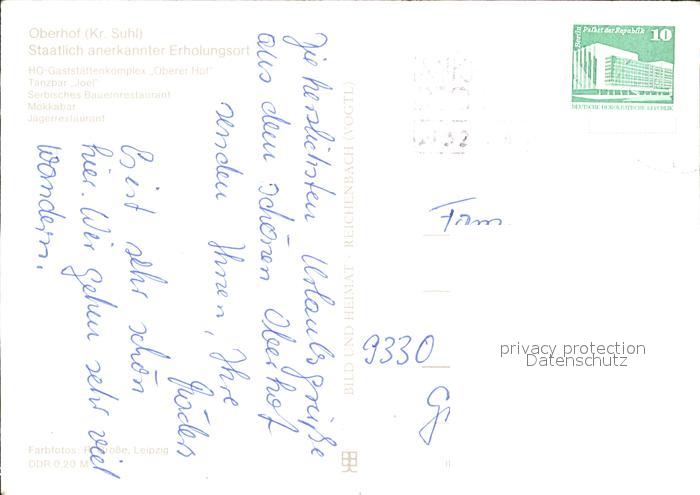 Oberhof (Kr. Suhl)
Staatlich anerkannter Erholungsort
HO-Gaststättenkomplex „Oberer Hof"
Tanzbar „Joel"
Serbisches Bauernrestaurant
Mokkabar
Jägerrestaurant
Die herzlichsten Urlaubsgrüße
aus dem schönen Oberhof
senden Ihnen, Ihre
Es ist sehr schön
hier. Wir gehen sehr viel
wandern.
Farbfotos: Leipzig
DDR 0,20 M
BILD UND HEIMAT · REICHENBACH (VOGTL)
Berlin Palast der Republik
10
DEUTSCHE DEMOKRATISCHE REPUBLIK
Fam.
9330
privacy protection
Datenschutz